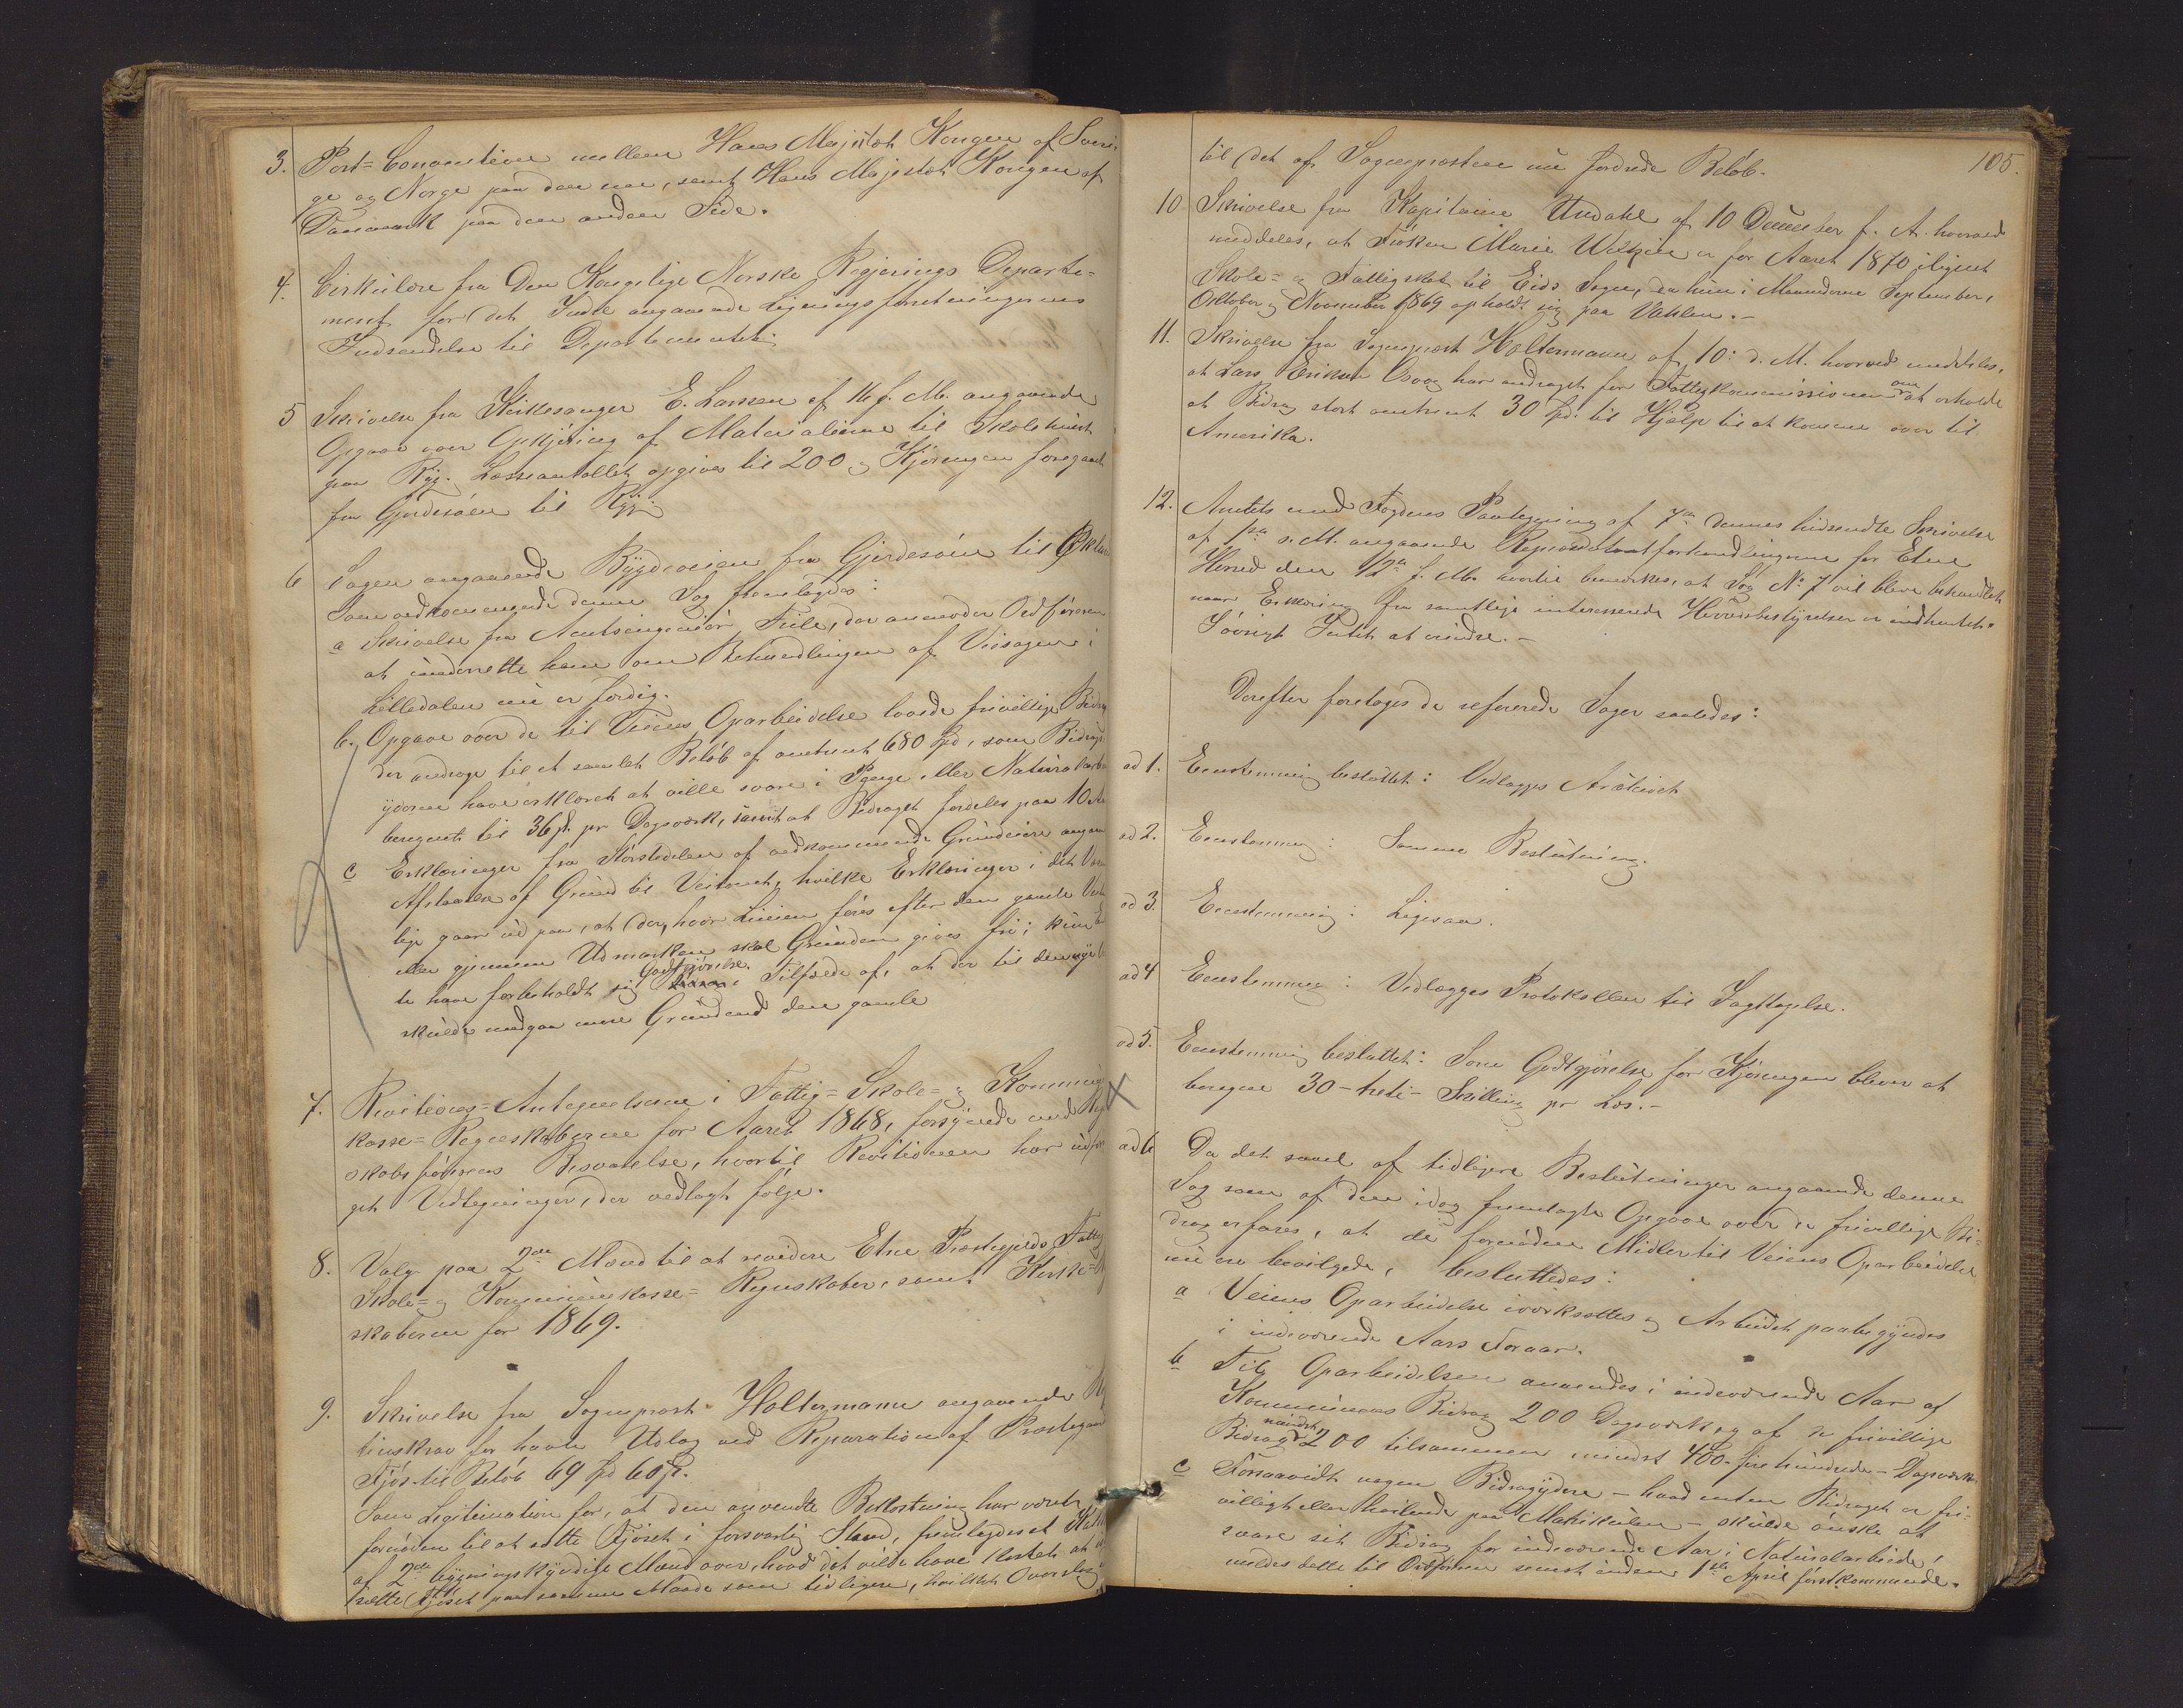 3. Post=Conventien mellem Hans Majestæt Kongen af Sveri-
ge og Norge paa den ene, samt Hans Majestæt Kongen af
Danmark paa den anden Side.
4. Cirkulære fra Den Kongelige Norske Regjerings Departe-
ment for det Indre angaaende Ligningsforretningernes
Indsendelse til Departementet
5 Skrivelse fra Kirkesanger E. Larsen af 16 f. M. angaaende
Opgave over Opkjøring af Materialierne til Skolehuset
paa Ryg. Lasseantallet opgives til 200 og Kjøringen foregaaet
fra Gjerdesøen til Ryg
6 Sagen angaaende Bygdeveien fra Gjerdesøen til
Som vedkommende denne Sag fremlagdes:
a Skrivelse fra Amtsingeniør Tiile, der anmoder Ordføreren
at underrette ham om Behandlingen af Veisagen i
Litledalen nu er færdig.
b. Opgave over de til Veiens Oparbeidelse lovede frivillige Bidrag
der andrage til et samlet Beløb af omtrent 680 Spd, som Bidrags-
yderne have erklæret at ville svare i Penge eller Naturalarbei
beregnet til 36 ß pr Dagsværk, samt at Bidraget fordeles paa 10 Aa
c Erklæringer fra Størstedelen af vedkommende Grundeiere angaa
Afstaaelse af Grund til Veitomt, hvilke Erklæringer i det Væsen
lige gaar ud paa, at der, hvor Linien føres efter den gamle Vei
eller gjennem Udmarken skal Grunden gives fri; kun
te have forbeholdt sig Godtgjørelse i Tilfælde af, at der til den nye
skulde medgaa mere Grund end den gamle
7. Revisions=Antegnelserne i Fattig=Skole= og Kommune
kasse=Regnskaberne for Aaret 1868, forsynede med Regn
skabsførerens Besvarelse, hvortil Revisionen har udfær
get Vedtegninger, der vedlagt følge.
8. Valg paa 2de Mænd til at revidere Etne Præstegjelds Fattig
Skole= og Kommunekasse=Regnskaber, samt Kirke=
skaberne for 1869.
9. Skrivelse fra Sognepræst Holtermann angaaende
tionskrav for havte Udlæg ved Reparation af Præstegaar
Fjøs til Beløb 69 Spd 60 ß.
Som Legitimation for, at den anvendte Bekostning har været
fornøden til at sætte Fjøset i forsvarlig Stand, fremlagdes et
af 2de bygningskyndige Mænd over, hvad det vilde have kostet at
sætte Fjøset paa samme Maade som tidligere, hvilket Overslag
105.
til det af Sognepræsten nu fordrede Beløb.
10 Skrivelse fra Kapitaine Undahl af 10 December f. A. hvorved
meddeles, at Frøken Marie er for Aaret 1870 ilignet
Skole= og Fattigskat til Eids Sogn, da hun i Maanederne September,
October og November 1869 opholdt sig paa Vaklen.-
11. Skrivelse fra Sognepræst Holtermann af 10: d. M. hvorved meddeles,
at Lars Eriksen Osvog har andraget for Fattigkommissionen om at erholde
et Bidrag stort omtrent 30 Spd. til Hjælp til at komme over til
Amerika.
12. Amtets med Fogdens Paategning af 7de dennes hidsendte Skrivelse
af 1ste s. M. angaaende Repræsentantforhandlingerne for Etne
Herred den 12te f. M. hvortil bemærkes, at Sag No 7 vil blive behandlet
naar Erklæring fra samtlige interesserede Herredsbestyrelser er indhentet.
Iøvrigt Intet at erindre.-
Derefter foretoges de refererede Sager saaledes:
ad 1. Eenstemmig besluttet: Vedlægges Arkivet
ad 2. Eenstemmig: Samme Beslutning.
ad 3. Eenstemmig: Ligesaa.
ad 4 Eenstemmig: Vedlægges Protokollen til Iagttagelse.
ad 5. Eenstemmig besluttet: Som Godtgjørelse for Kjøringen bliver at
beregne 30-treti- Skilling pr Læs.-
ad 6 Da det saavel af tidligere Beslutninger angaaende denne
Sag som af den idag fremlagte Opgave over de frivillige Bi-
drag erfares, at de fornødne Midler til Veiens Oparbeidelse
nu ere bevilgede, besluttedes:
a Veiens Oparbeidelse iværksættes og Arbeidet paabegyndes
i indeværende Aars Foraar.
b Til Oparbeidelsen anvendes i indeværende Aar af
Kommunens Bidrag 200 Dagsværk, og af de frivillige
Bidrag mindst 200 tilsammen mindst 400- fire hundrede- Dagsværk
c Forsaavidt nogen Bidragydere - hvad enten Bidraget er fri-
villigt eller hvilende paa Matrikulen - skulde ønske at
svare sit Bidrag for indeværende Aar i Naturalarbeide,
meldes dette til Ordføreren senest inden 1ste April førstkommende.